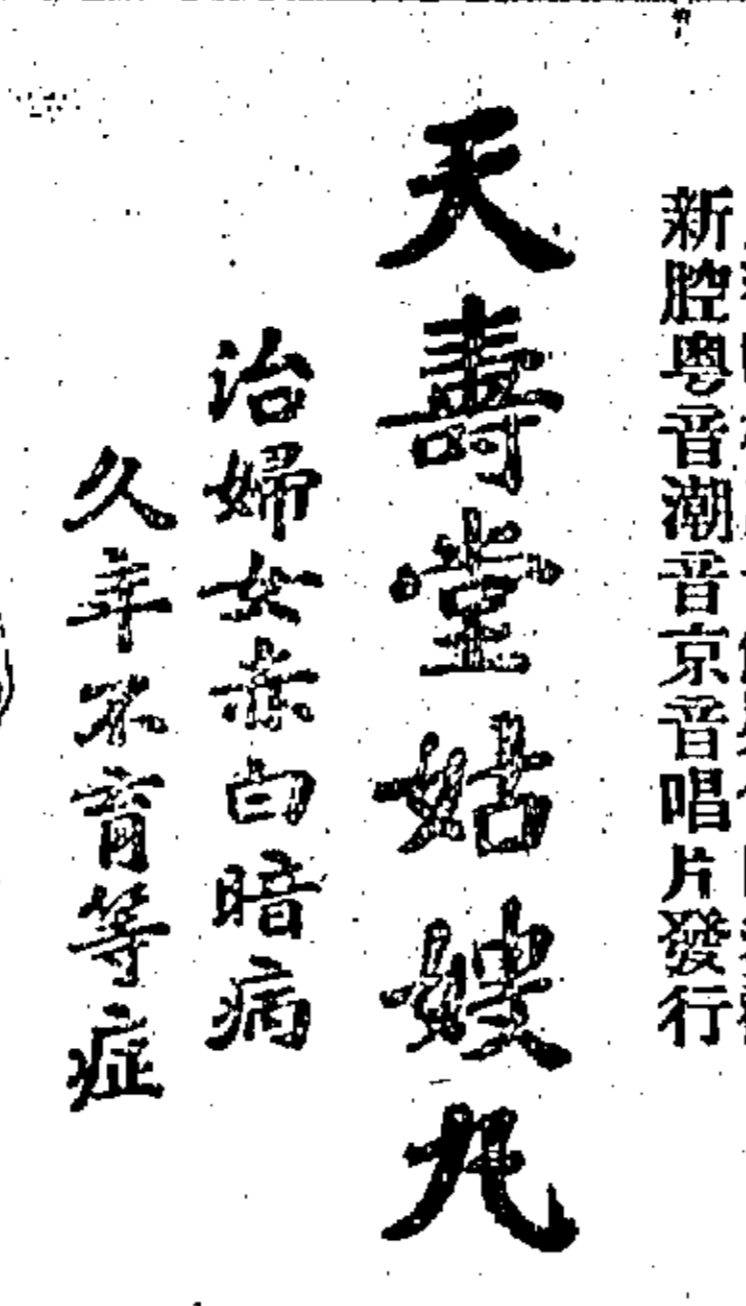 新腔粵音潮音京音唱片發行
天壽堂姑嫂丸
治婦女赤白暗病
久年不育等症